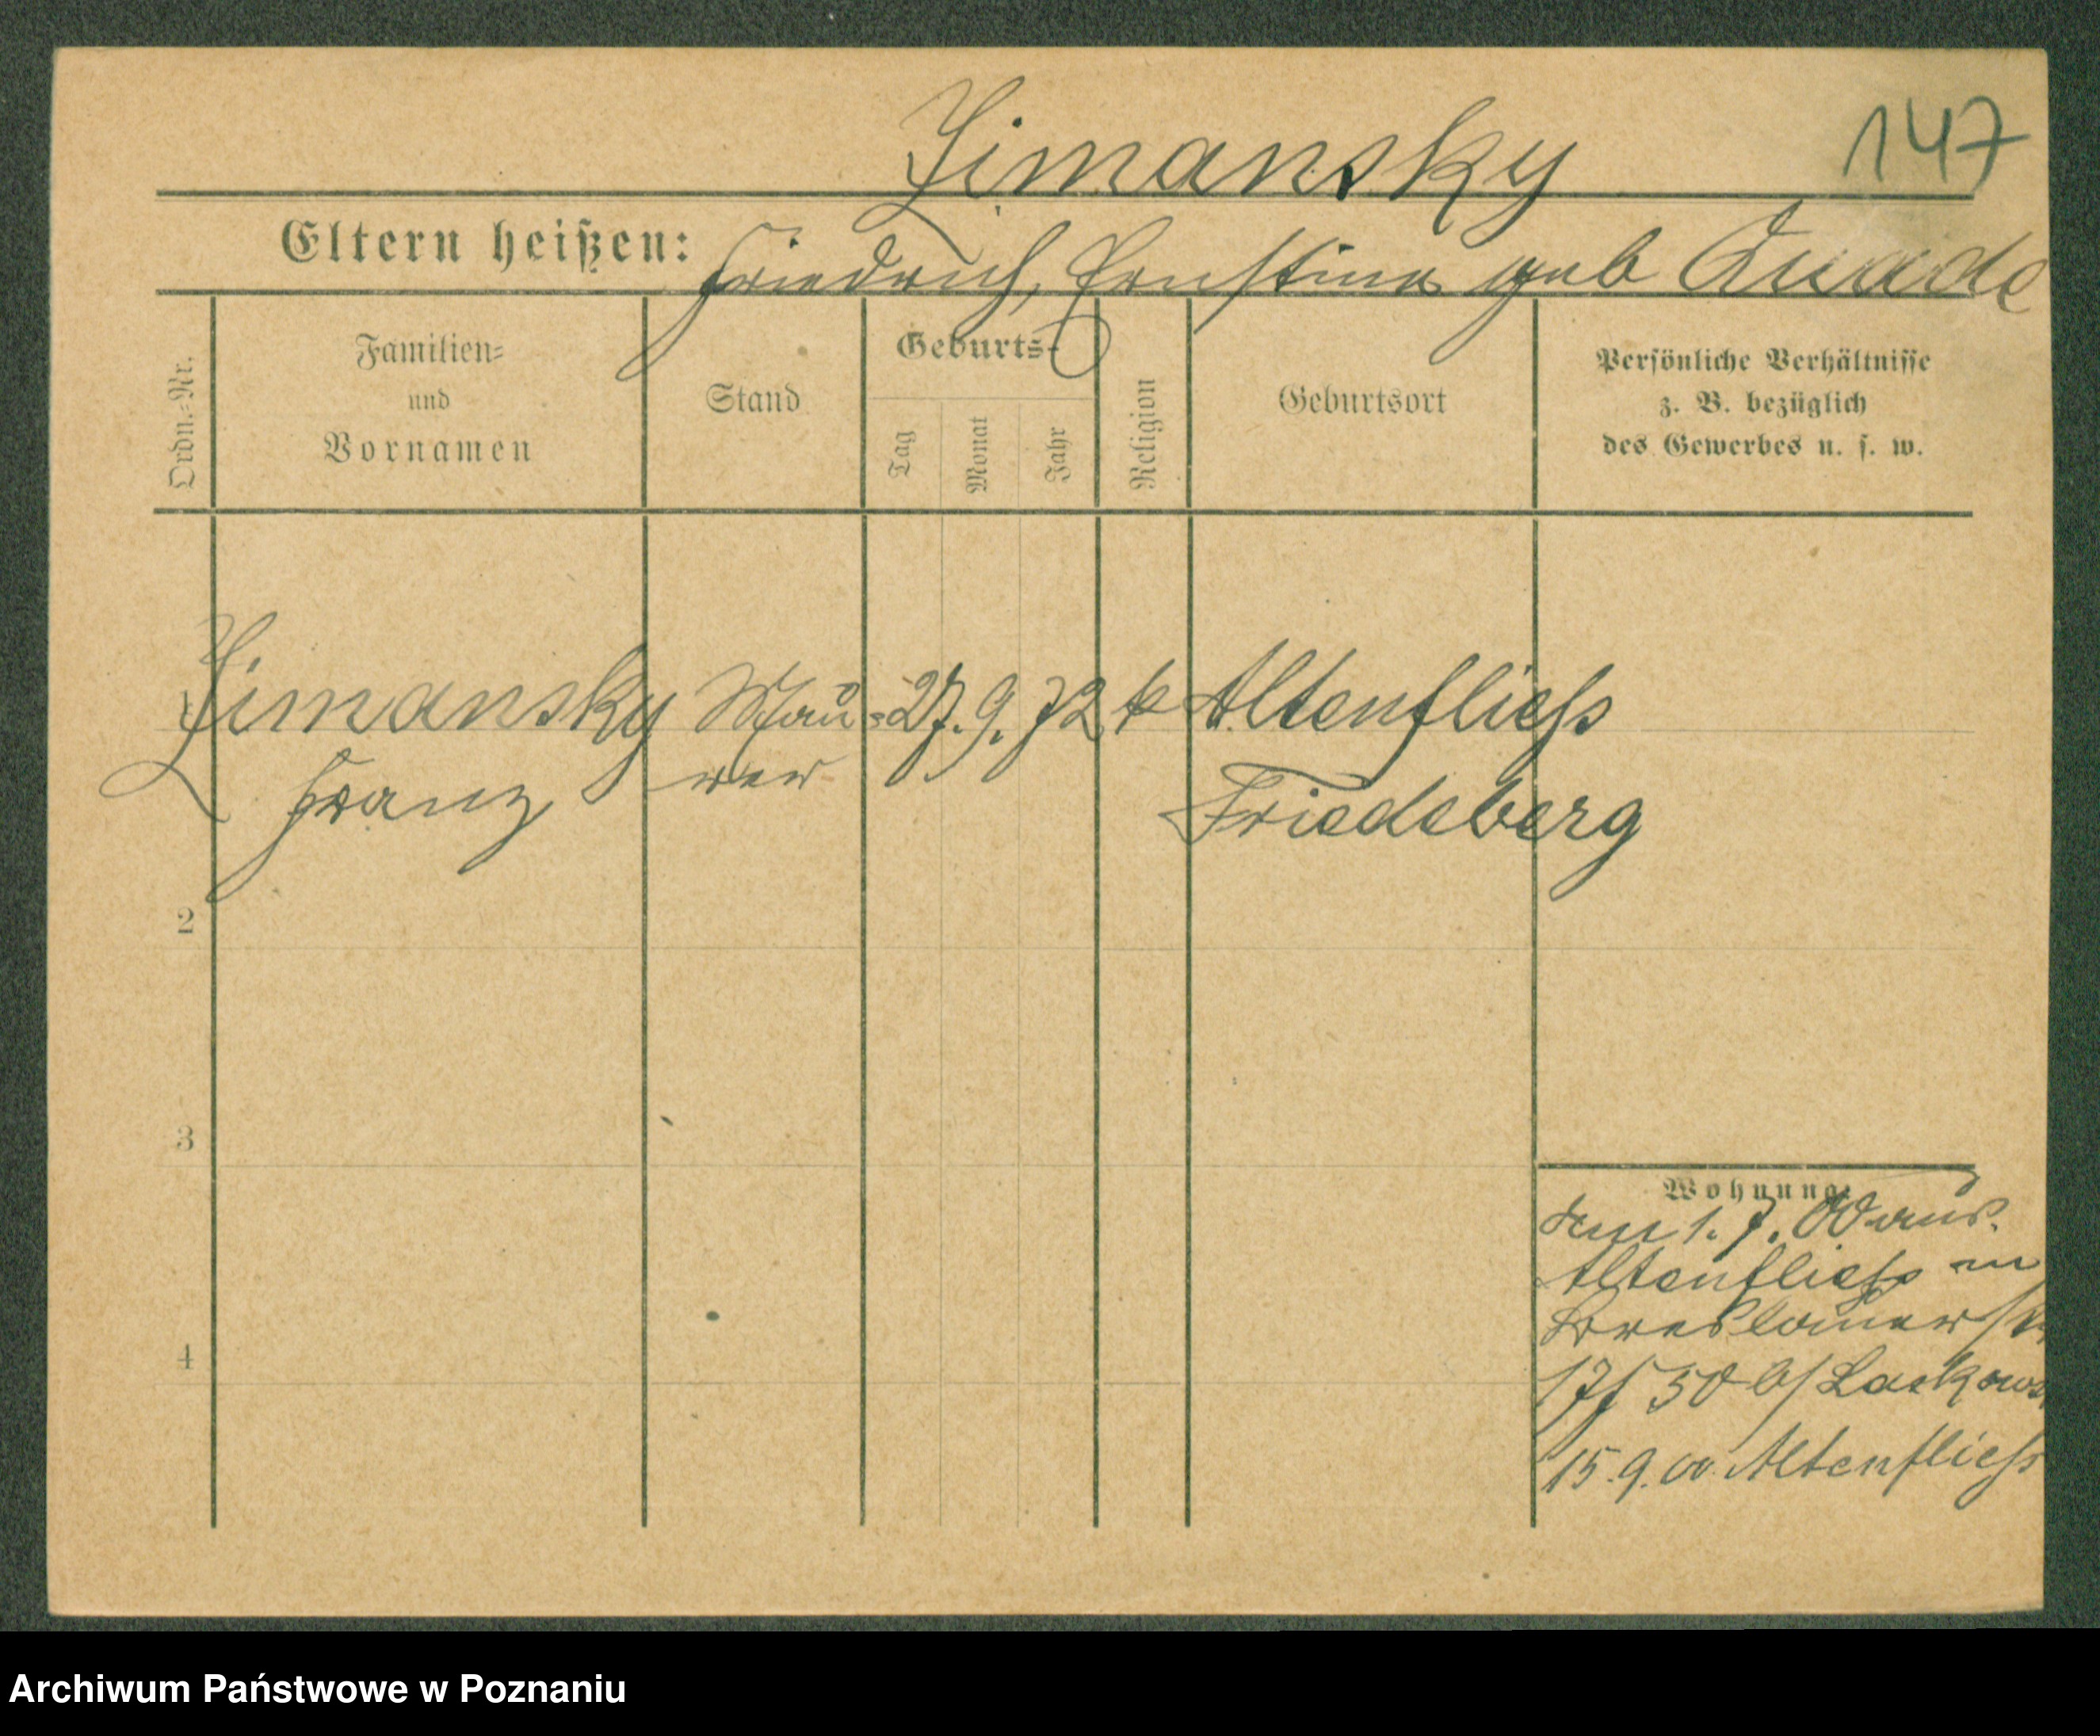 Zimansky
147
Eltern heißen: Friedrich, Ernstine geb Quade
Ordn.-Nr.
Familien-
und
Vornamen
Stand
Geburts-
Tag
Monat
Jahr
Religion
Geburtsort
Persönliche Verhältnisse
z. B. bezüglich
des Gewerbes u. s. w.
Zimansky Mau- 27. 9. 72 k Altenfliess
Franz rer Friedeberg
2
3
4
Wohnung:
1. 7. 00 aus
Altenfliess in
Breslauerstr
50 b/
15. 9. 00. Altenfliess
Archiwum Państwowe w Poznaniu